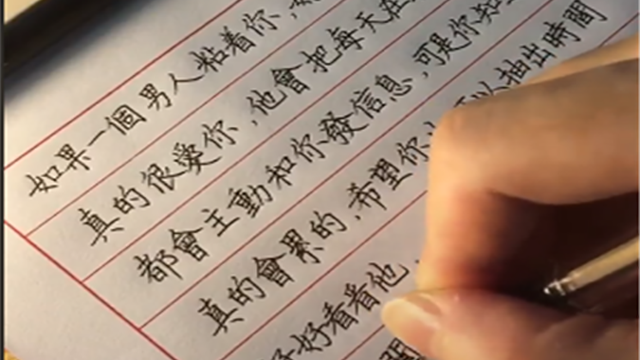 如果一個男人粘着你，
真的很愛你，他會把每天在
都會主動和你發信息，可是你知
真的會累的，希望你 以抽出時間
好看看他，
間